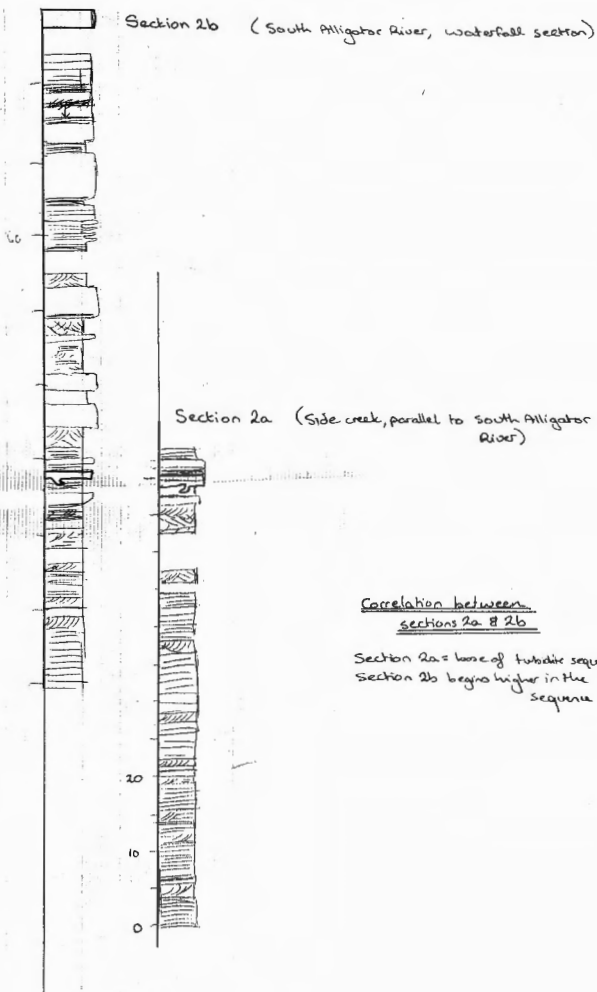 Section 2b (South Alligator River, waterfall section)
60
Section 2a (Side creek, parallel to South Alligator
River)
Correlation between
sections 2a & 2b
Section 2a = base of turbidite sequ
Section 2b begins higher in the
sequence
20
10
0